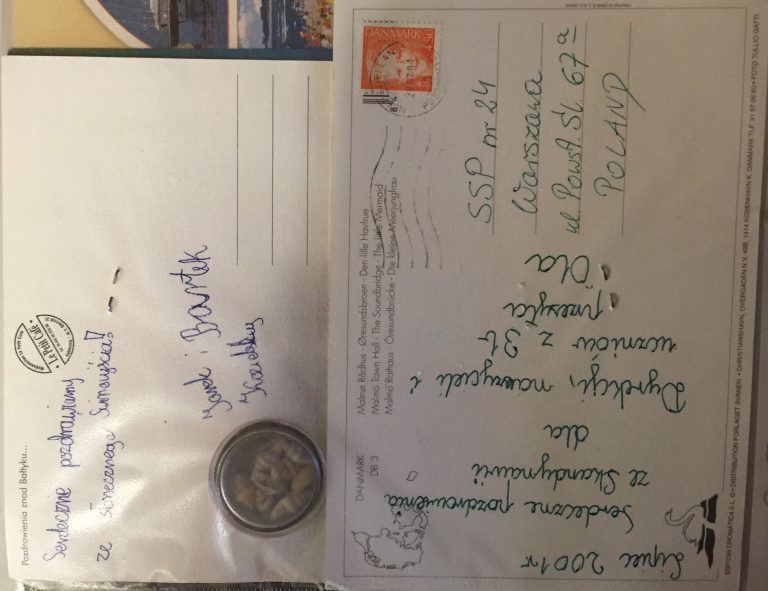 Pozdrowienia znad Bałtyku...
Serdeczne pozdrowienia
ze słonecznego Świnoujścia!
Jarek i Bartek
Le Petit Café
DANMARK
DB 3
Malmø Rådhus • Øresundsbroen • Den lille Havfrue
Malmö Town Hall • The Soundbridge • The Little Mermaid
Malmö Rathaus • Öresundbrücke • Die kleine Meerjungfrau
DANMARK
4.50
Lipiec 2001r
Serdeczne pozdrowienia
ze Skandynawii
dla
Dyrekcji, nauczycieli i
uczniów z 3b
przesyła
Ola
SSP nr 24
Warszawa
ul. Powst. Śl. 67a
POLAND
EDITION CROMATICA S.L. ® • DISTRIBUTION FORLAGET SVANEN • CHRISTIANSHAVN, OVERGADEN N.V. 49B, 1414 KØBENHAVN K, DANMARK, TLF. 31 57 06 60 • FOTO TULLIO GATTI